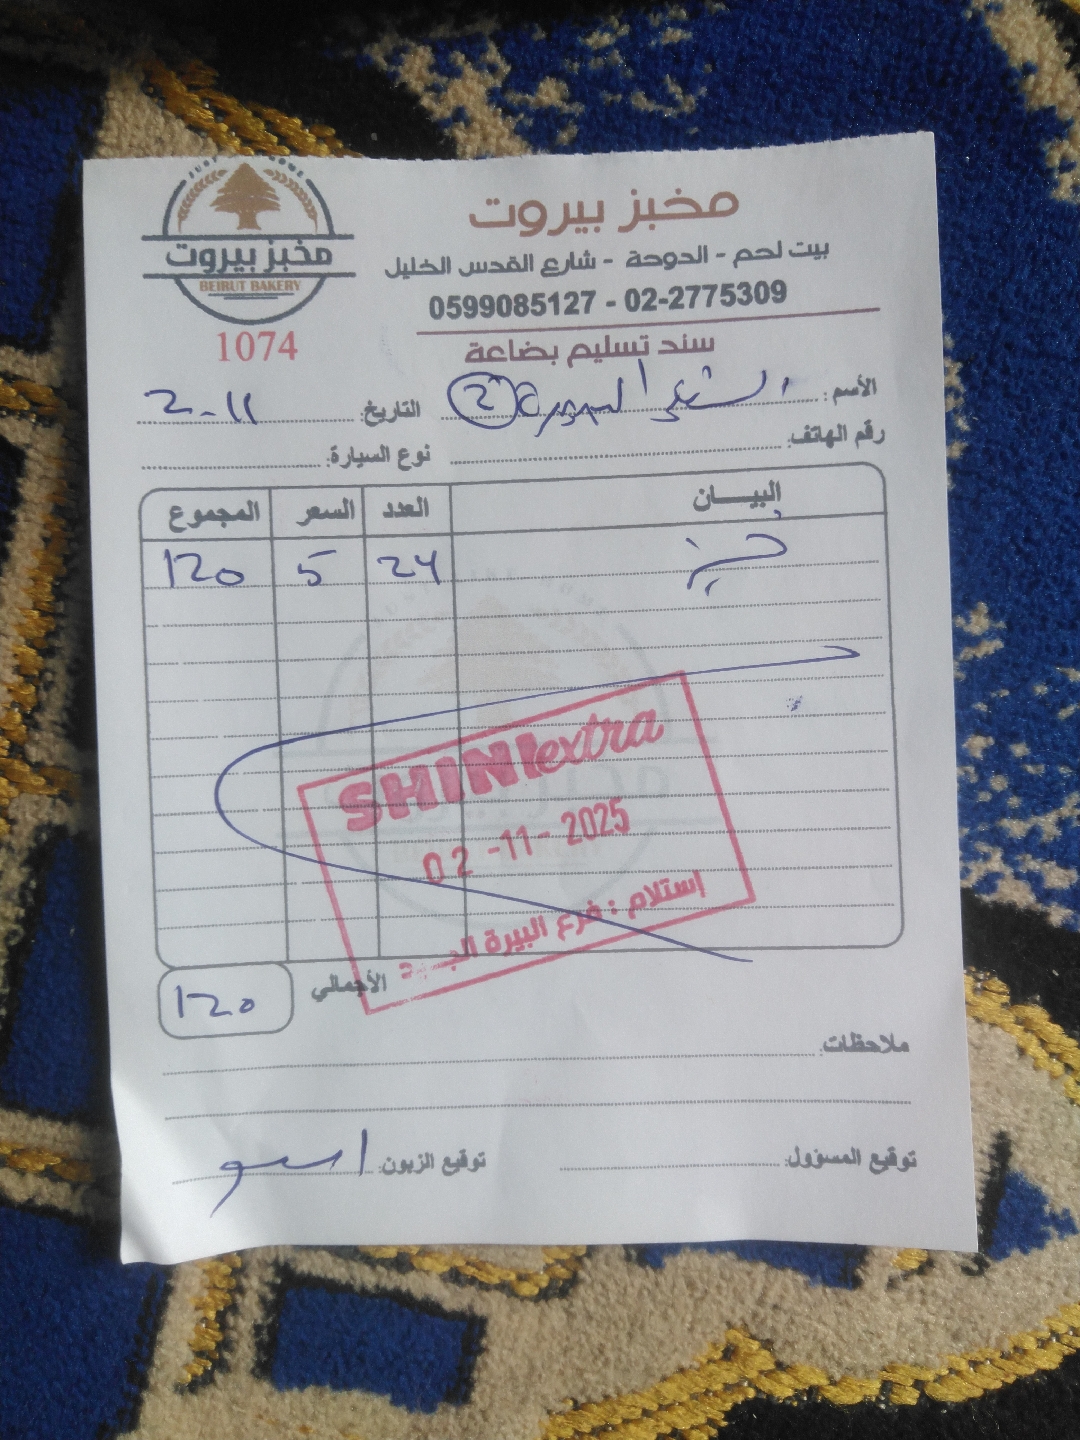 JUST HOME
مخبز بيروت
BEIRUT BAKERY
1074
مخبز بيروت
بيت لحم - الدوحة - شارع القدس الخليل
0599085127 - 02-2775309
سند تسليم بضاعة
الأسم: الشني البيرة 2
التاريخ: 2-11
رقم الهاتف:
نوع السيارة:
البيـــان العدد السعر المجموع
خبز 24 5 120
SHINI extra
02-11-2025
إستلام : فرع البيرة
الأجمالي 120
ملاحظات:
توقيع المسؤول:
توقيع الزبون: